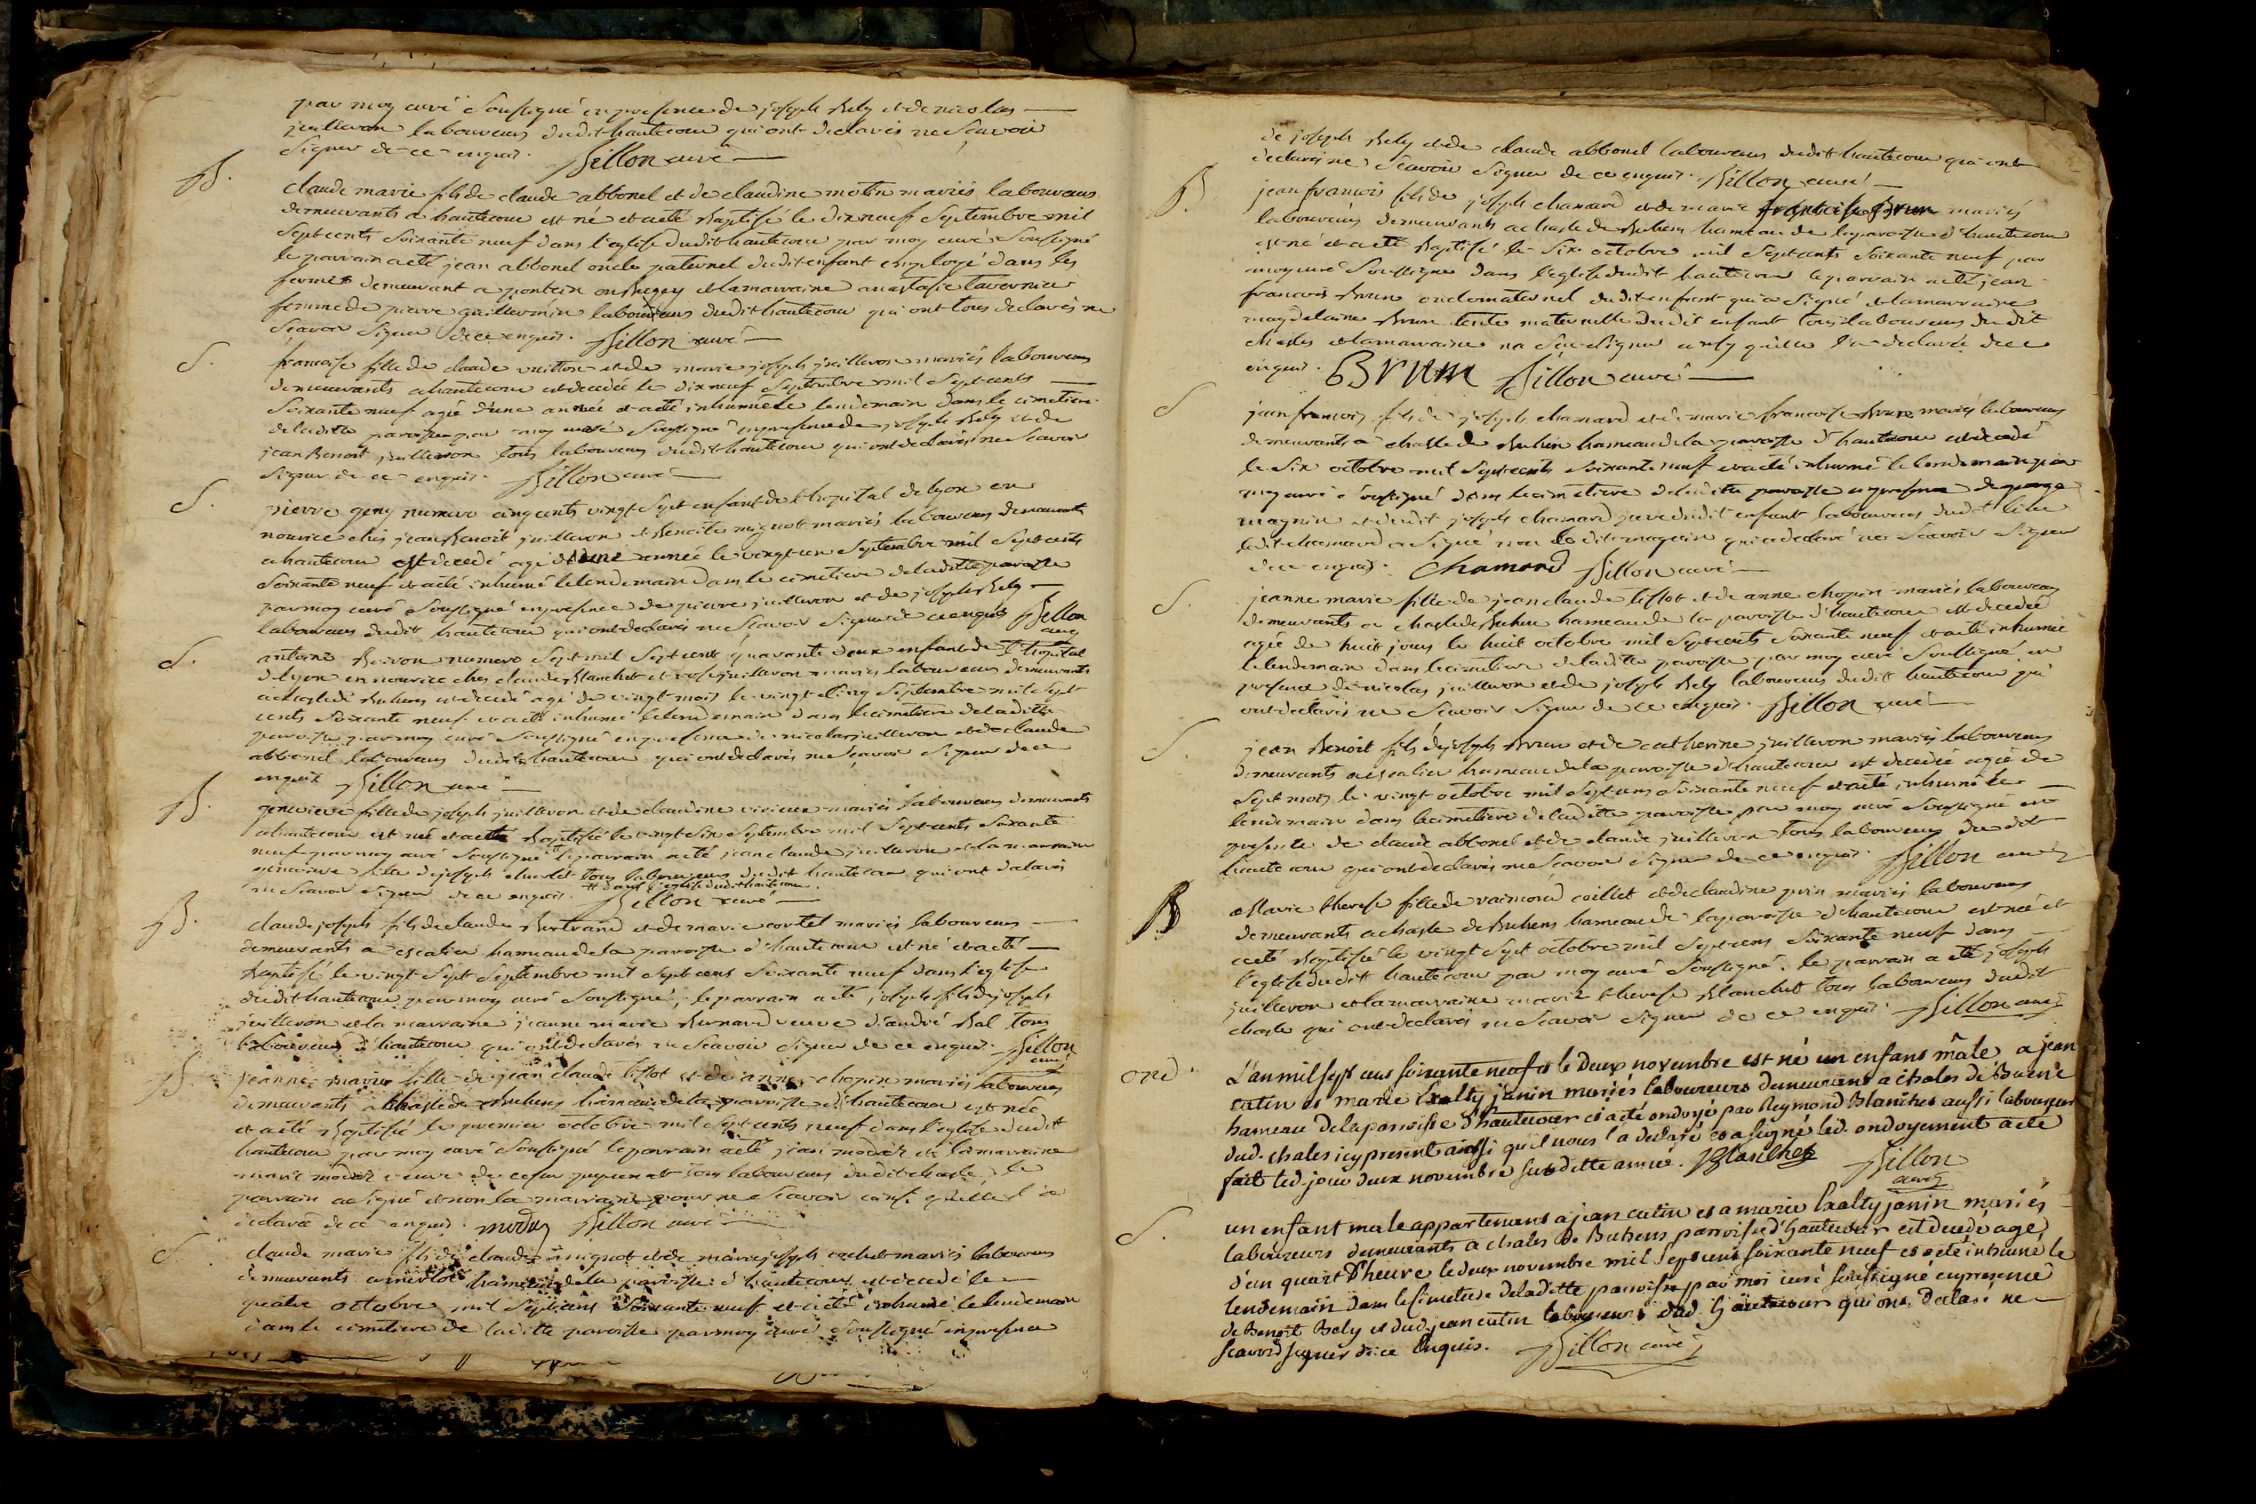 par moy curé soussigné en presence de joseph Rely et de nicolas
juilleron laboureurs dudit hautecour qui ont declarés ne scavoir
signer de ce enquis. Billon curé
B.
claude marie fils de claude abbonel et de claudine mariés laboureurs
demeurants a hautecour est né et a eté Baptisé le dix neuf septembre mil
sept cents soixante neuf dans l'eglise dudit hautecour par moy curé soussigné
le parrain a eté jean abbonel oncle paternel dudit enfant employé dans les
fermes demeurant a et la marraine anastasie tavernier
femme de pierre guillermin laboureurs dudit hautecour qui ont tous declarés ne
scavoir signer de ce enquis. Billon curé
S.
francoise fille de claude vuitton et de marie joseph juilleron mariés laboureurs
demeurants a hautecour est decedée le dix neuf septembre mil sept cents
soixante neuf agée d'une année et a eté inhumée le lendemain dans le cimetiere
de laditte paroisse par moy curé soussigné en presence de joseph Rely et de
jean Benoit juilleron tous laboureurs dudit hautecour qui ont declarés ne scavoir
signer de ce enquis. Billon curé
S.
pierre numero cinq cents vingt sept enfant de l'hopital de lyon en
nourice chés jean Benoit juilleron et Benoite mignot mariés laboureurs demeurants
a hautecour est decedé agé d'une année le vingt un septembre mil sept cents
soixante neuf et a eté inhumé le lendemain dans le cimetiere de laditte paroisse
par moy curé soussigné en presence de pierre juilleron et de joseph Rely
laboureurs dudit hautecour qui ont declarés ne scavoir signer de ce enquis Billon
curé
S.
antoine numero sept mil sept cents quarante deux enfant de l'hopital
de lyon en nourice chés claude Blanchet et juilleron mariés laboureurs demeurants
a chasle de Buhens est decedé agé de vingt mois le vingt cinq septembre mil sept
cents soixante neuf et a eté inhumé le lendemain dans le cimetiere de laditte
paroisse par moy curé soussigné en presence de nicolas juilleron et de claude
abbonel laboureurs dudit hautecour qui ont declarés ne scavoir signer de ce
enquis Billon curé
B.
genevieve fille de joseph juilleron et de claudine mariés laboureurs demeurants
a hautecour est née et a eté Baptisé le vingt six septembre mil sept cents soixante
neuf par moy curé soussigné # le parrain a eté jean claude juilleron et la marraine
genevieve fille de joseph tous laboureurs dudit hautecour qui ont declarés
ne scavoir signer de ce enquis. # dans l'eglise dudit hautecour. Billon curé
B.
claude joseph fils de claude Bertrand et de marie cortel mariés laboureurs
demeurants a escalier hameau de la paroisse d'hautecour est né et a eté
Baptisé le vingt sept septembre mil sept cens soixante neuf dans l'eglise
dudit hautecour par moy curé soussigné, le parrain a eté joseph fils de joseph
juilleron et la marraine jeanne marie Bernard veuve d'andré Bal tous
laboureurs d'hautecour qui ont declarés ne scavoir signer de ce enquis. Billon
curé
B.
jeanne marie fille de jean claude tissot et de anne chopin mariés laboureurs
demeurants a chasle de Buhens hameau de la paroisse d'hautecour est née
et a eté Baptisé le premier octobre mil sept cents neuf dans l'eglise dudit
hautecour par moy curé soussigné le parrain a eté jean et la marraine
marie veuve de tous laboureurs dudit chasle, le
parrain a signé et non la marraine pour ne scavoir ainsi qu'elle l'a
declarée de ce enquis. Billon curé
S.
claude marie fils de claude mignot et de marie joseph mariés laboureurs
demeurants a hameau de la paroisse d'hautecour est decedé le
quatre octobre mil sept cens soixante neuf et a eté inhumé le lendemain
dans le cimetiere de laditte paroisse par moy curé soussigné en presence
de joseph Rely et de claude abbonel laboureurs dudit hautecour qui ont
declarés ne scavoir signer de ce enquis. Billon curé
B.
jean francois fils de joseph chamard et de marie francoise Brun mariés
laboureurs demeurants a chasle de Buhens hameau de la paroisse d'hautecour
est né et a eté Baptisé le six octobre mil sept cents soixante neuf par
moy curé soussigné dans l'eglise dudit hautecour le parrain a eté jean
francois Brun oncle maternel dudit enfant qui a signé et la marraine
magdelaine Brun tante maternelle dudit enfant tous laboureurs dudit
chasles et la marraine na sçu signer ainsy qu'elle l'a declarée de ce
enquis. BRUM Billon curé
S
jean francois fils de joseph chamard et de marie francoise Brun mariés laboureurs
demeurants a chasle de Buhens hameau de la paroisse d'hautecour est decedé
le six octobre mil sept cents soixante neuf et a eté inhumé le lendemain par
moy curé soussigné dans le cimetiere de laditte paroisse en presence de
magnin et dudit joseph chamard pere dudit enfant laboureurs dudit lieu
ledit chamard a signé non ledit magnin qui a declaré ne scavoir signer
de ce enquis. Chamard Billon curé
S.
jeanne marie fille de jean claude tissot et de anne chopin mariés laboureurs
demeurants a chasle de Buhens hameau de la paroisse d'hautecour est decedée
agée de huit jours le huit octobre mil sept cents soixante neuf et a eté inhumée
le lendemain dans le cimetiere de laditte paroisse par moy curé soussigné en
presence de nicolas juilleron et de joseph Rely laboureurs dudit hautecour qui
ont declarés ne scavoir signer de ce enquis. Billon curé
S.
jean Benoit fils de joseph Brun et de catherine juilleron mariés laboureurs
demeurants a escalier hameau de la paroisse d'hautecour est decedé agé de
sept mois le vingt octobre mil sept cens soixante neuf et a eté inhumé le
lendemain dans le cimetiere de laditte paroisse par moy curé soussigné en
presence de claude abbonel et de claude juilleron tous laboureurs dudit
hautecour qui ont declarés ne scavoir signer de ce enquis. Billon curé
B
Marie therese fille de raimond caillet et de claudine mariés laboureurs
demeurants a chasle de Buhens hameau de la paroisse d'hautecour est née et
a eté Baptisée le vingt sept octobre mil sept cens soixante neuf dans
l'eglise dudit hautecour par moy curé soussigné. le parrain a eté joseph
juilleron et la marraine marie therese Blanchet tous laboureurs dudit
chasle qui ont declarés ne scavoir signer de ce enquis. Billon curé
ond.
L'an mil sept cens soixante neuf et le deux novembre est né un enfans mâle a jean
cutin et marie janin mariés laboureurs demeurans a chales de Buene
hameau de la paroisse d'hautecour et a eté ondoyé par Reymond Blanchet aussi laboureur
dud. chales icy present ainsi qu'il nous l'a declaré et a signé led. ondoyement a eté
fait led. jour deux novembre susditte année. Blanchet Billon
curé
S.
un enfant male appartenans a jean cutin et a marie janin mariés
laboureurs demeurants a chales de Buhens paroisse d'hautecour est decedé agé
d'un quart d'heure le deux novembre mil sept cens soixante neuf et a eté inhumé le
lendemain dans le simetiere de laditte paroisse par moi curé soussigné en presence
de Benoit Rely et dud. jean cutin laboureurs dud. hautecour qui ont declaré ne
scavoir signer de ce enquis. Billon curé